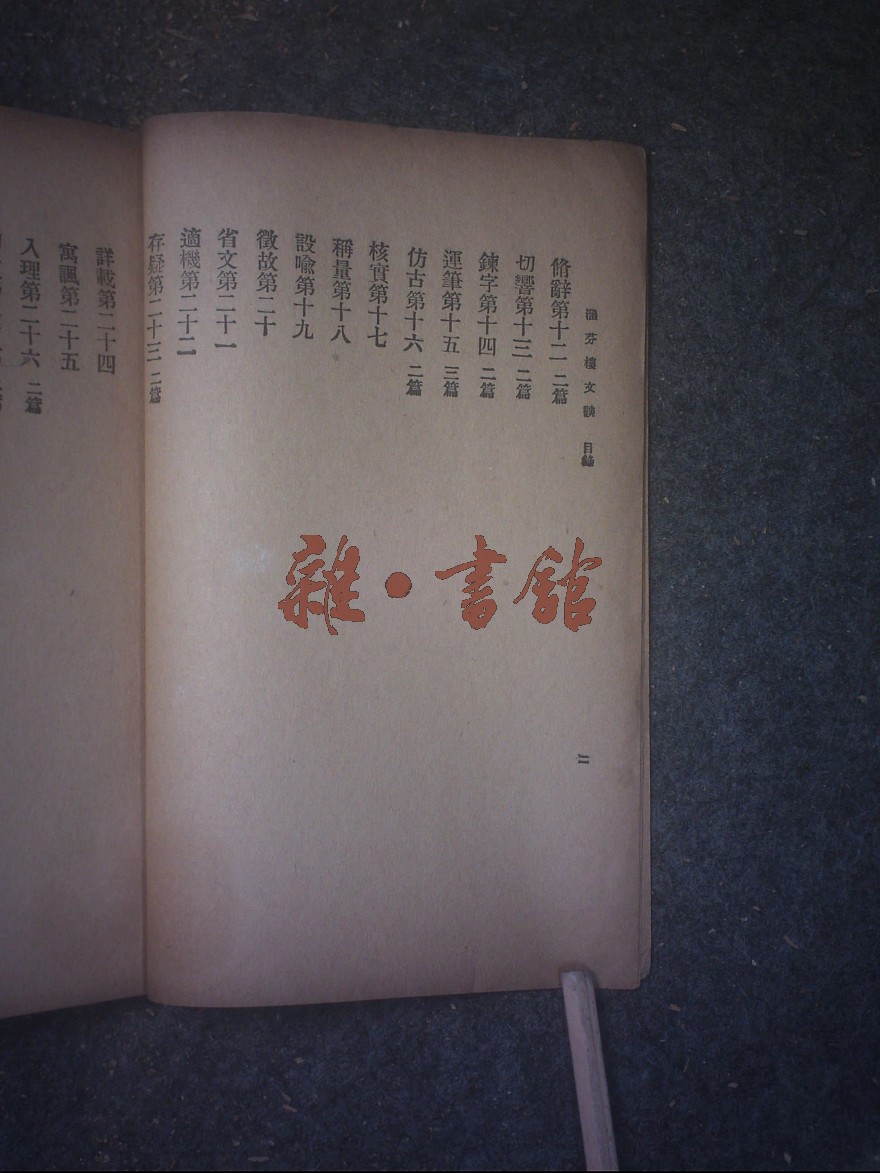 涵芬樓文談 目錄
二
脩辭第十二 二篇
切響第十三 二篇
鍊字第十四 二篇
運筆第十五 三篇
仿古第十六 二篇
核實第十七
稱量第十八
設喩第十九
徵故第二十
省文第二十一
適機第二十二
存疑第二十三 二篇
詳載第二十四
寓諷第二十五
入理第二十六 二篇
雜·書館